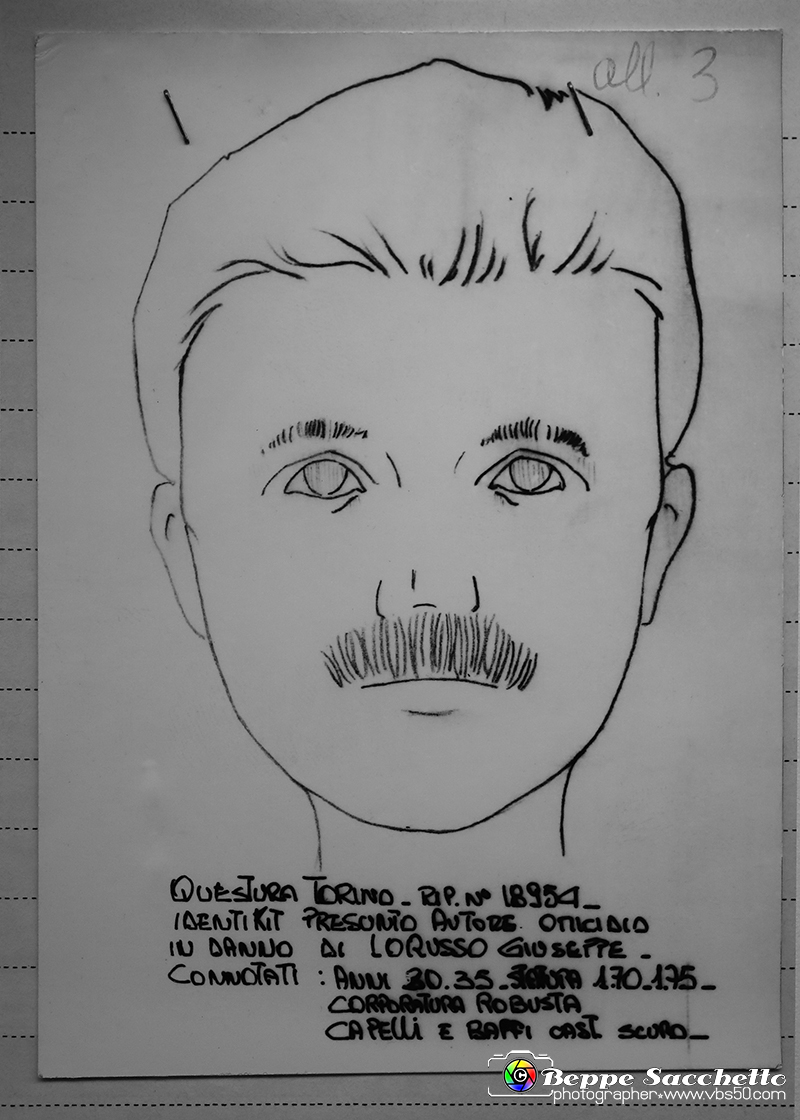 all. 3
QUESTURA TORINO_ RIP. Nº 18954_
IDENTIKIT PRESUNTO AUTORE OMICIDIO
IN DANNO DI LORUSSO GIUSEPPE_
CONNOTATI : ANNI 30.35_STATURA 170_175_
CORPORATURA ROBUSTA
CAPELLI E BAFFI CAST SCURO_
Beppe Sacchetto
photographer•www.vbs50.com